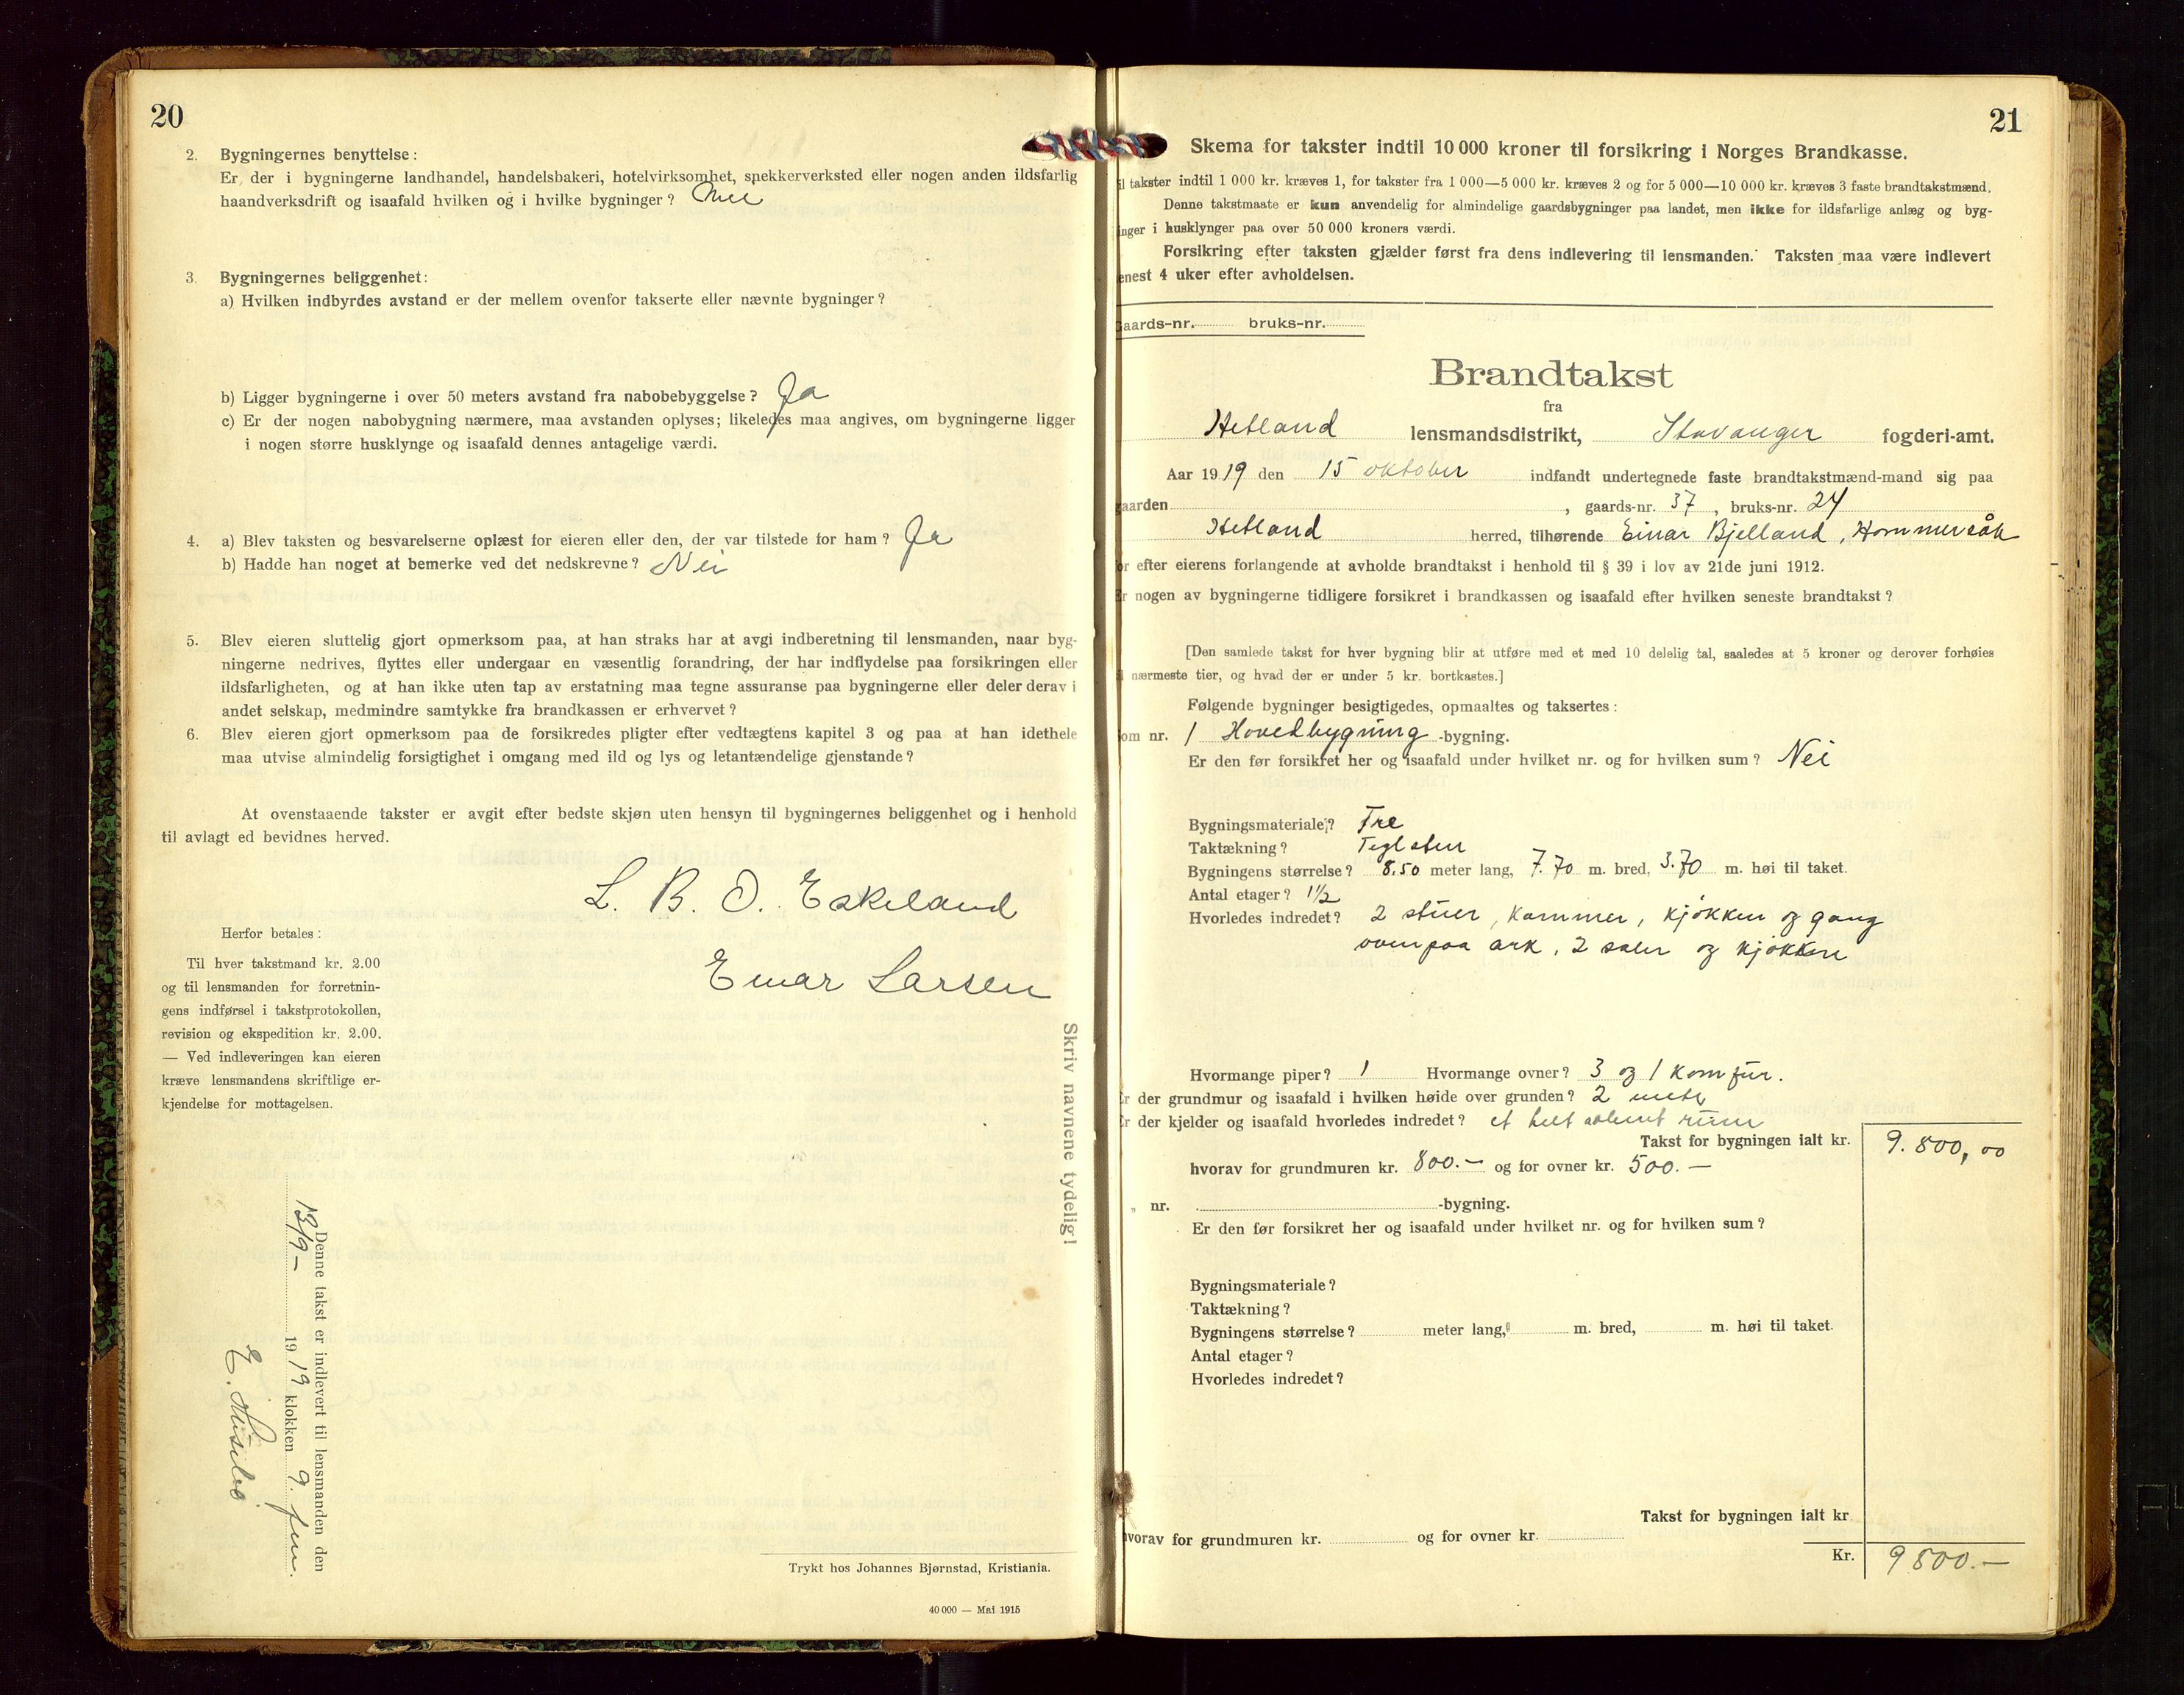 20
2. Bygningernes benyttelse:
Er der i bygningerne landhandel, handelsbakeri, hotelvirksomhet, spekkerverksted eller nogen anden ildsfarlig
haandverksdrift og isaafald hvilken og i hvilke bygninger? Nei
3. Bygningernes beliggenhet:
a) Hvilken indbyrdes avstand er der mellem ovenfor takserte eller nævnte bygninger?
b) Ligger bygningerne i over 50 meters avstand fra nabobebyggelse? Ja
c) Er der nogen nabobygning nærmere, maa avstanden oplyses; likeledes maa angives, om bygningerne ligger
i nogen større husklynge og isaafald dennes antagelige værdi.
4. a) Blev taksten og besvarelserne oplæst for eieren eller den, der var tilstede for ham? Ja
b) Hadde han noget at bemerke ved det nedskrevne? Nei
5. Blev eieren sluttelig gjort opmerksom paa, at han straks har at avgi indberetning til lensmanden, naar byg-
ningerne nedrives, flyttes eller undergaar en væsentlig forandring, der har indflydelse paa forsikringen eller
ildsfarligheten, og at han ikke uten tap av erstatning maa tegne assuranse paa bygningerne eller deler derav i
andet selskap, medmindre samtykke fra brandkassen er erhvervet?
6. Blev eieren gjort opmerksom paa de forsikredes pligter efter vedtægtens kapitel 3 og paa at han idethele
maa utvise almindelig forsigtighet i omgang med ild og lys og letantændelige gjenstande?
At ovenstaaende takster er avgit efter bedste skjøn uten hensyn til bygningernes beliggenhet og i henhold
til avlagt ed bevidnes herved.
L. B. O. Eskeland
Einar Larsen
Herfor betales:
Til hver takstmand kr. 2.00
og til lensmanden for forretnin-
gens indførsel i takstprotokollen,
revision og ekspedition kr. 2.00.
— Ved indleveringen kan eieren
kræve lensmandens skriftlige er-
kjendelse for mottagelsen.
Skriv navnene tydelig!
Denne takst er indlevert til lensmanden den
13/9- 1919 klokken 9. fm.
E.
Trykt hos Johannes Bjørnstad, Kristiania.
40 000 — Mai 1915
21
Skema for takster indtil 10 000 kroner til forsikring i Norges Brandkasse.
il takster indtil 1 000 kr. kræves 1, for takster fra 1 000—5 000 kr. kræves 2 og for 5 000—10 000 kr. kræves 3 faste brandtakstmænd.
Denne takstmaate er kun anvendelig for almindelige gaardsbygninger paa landet, men ikke for ildsfarlige anlæg og byg-
inger i husklynger paa over 50 000 kroners værdi.
Forsikring efter taksten gjælder først fra dens indlevering til lensmanden. Taksten maa være indlevert
enest 4 uker efter avholdelsen.
Gaards-nr. bruks-nr.
Brandtakst
fra
Hetland lensmandsdistrikt, Stavanger fogderi-amt.
Aar 1919 den 15 oktober indfandt undertegnede faste brandtakstmænd-mand sig paa
gaarden , gaards-nr. 37, bruks-nr. 24
Hetland herred, tilhørende Einar Bjelland, Hommersåk
or efter eierens forlangende at avholde brandtakst i henhold til § 39 i lov av 21de juni 1912.
Er nogen av bygningerne tidligere forsikret i brandkassen og isaafald efter hvilken seneste brandtakst?
[Den samlede takst for hver bygning blir at utføre med et med 10 delelig tal, saaledes at 5 kroner og derover forhøies
l nærmeste tier, og hvad der er under 5 kr. bortkastes.]
Følgende bygninger besigtigedes, opmaaltes og taksertes:
om nr. 1 Hovedbygning -bygning.
Er den før forsikret her og isaafald under hvilket nr. og for hvilken sum? Nei
Bygningsmateriale? Tre
Taktækning? Teglsten
Bygningens størrelse? 8.50 meter lang, 7.70 m. bred, 3.70 m. høi til taket.
Antal etager? 1½
Hvorledes indredet? 2 stuer, kammer, kjøkken og gang
ovenpaa ark, 2 saler og kjøkken
Hvormange piper? 1 Hvormange ovner? 3 og 1 komfur.
Er der grundmur og isaafald i hvilken høide over grunden? 2 meter
Er der kjelder og isaafald hvorledes indredet? et helt rum
Takst for bygningen ialt kr. 9.800,00
hvorav for grundmuren kr. 800.— og for ovner kr. 500.—
„ nr. -bygning.
Er den før forsikret her og isaafald under hvilket nr. og for hvilken sum?
Bygningsmateriale?
Taktækning?
Bygningens størrelse? meter lang, m. bred, m. høi til taket.
Antal etager?
Hvorledes indredet?
Takst for bygningen ialt kr
hvorav for grundmuren kr. og for ovner kr.
Kr. 9800.—